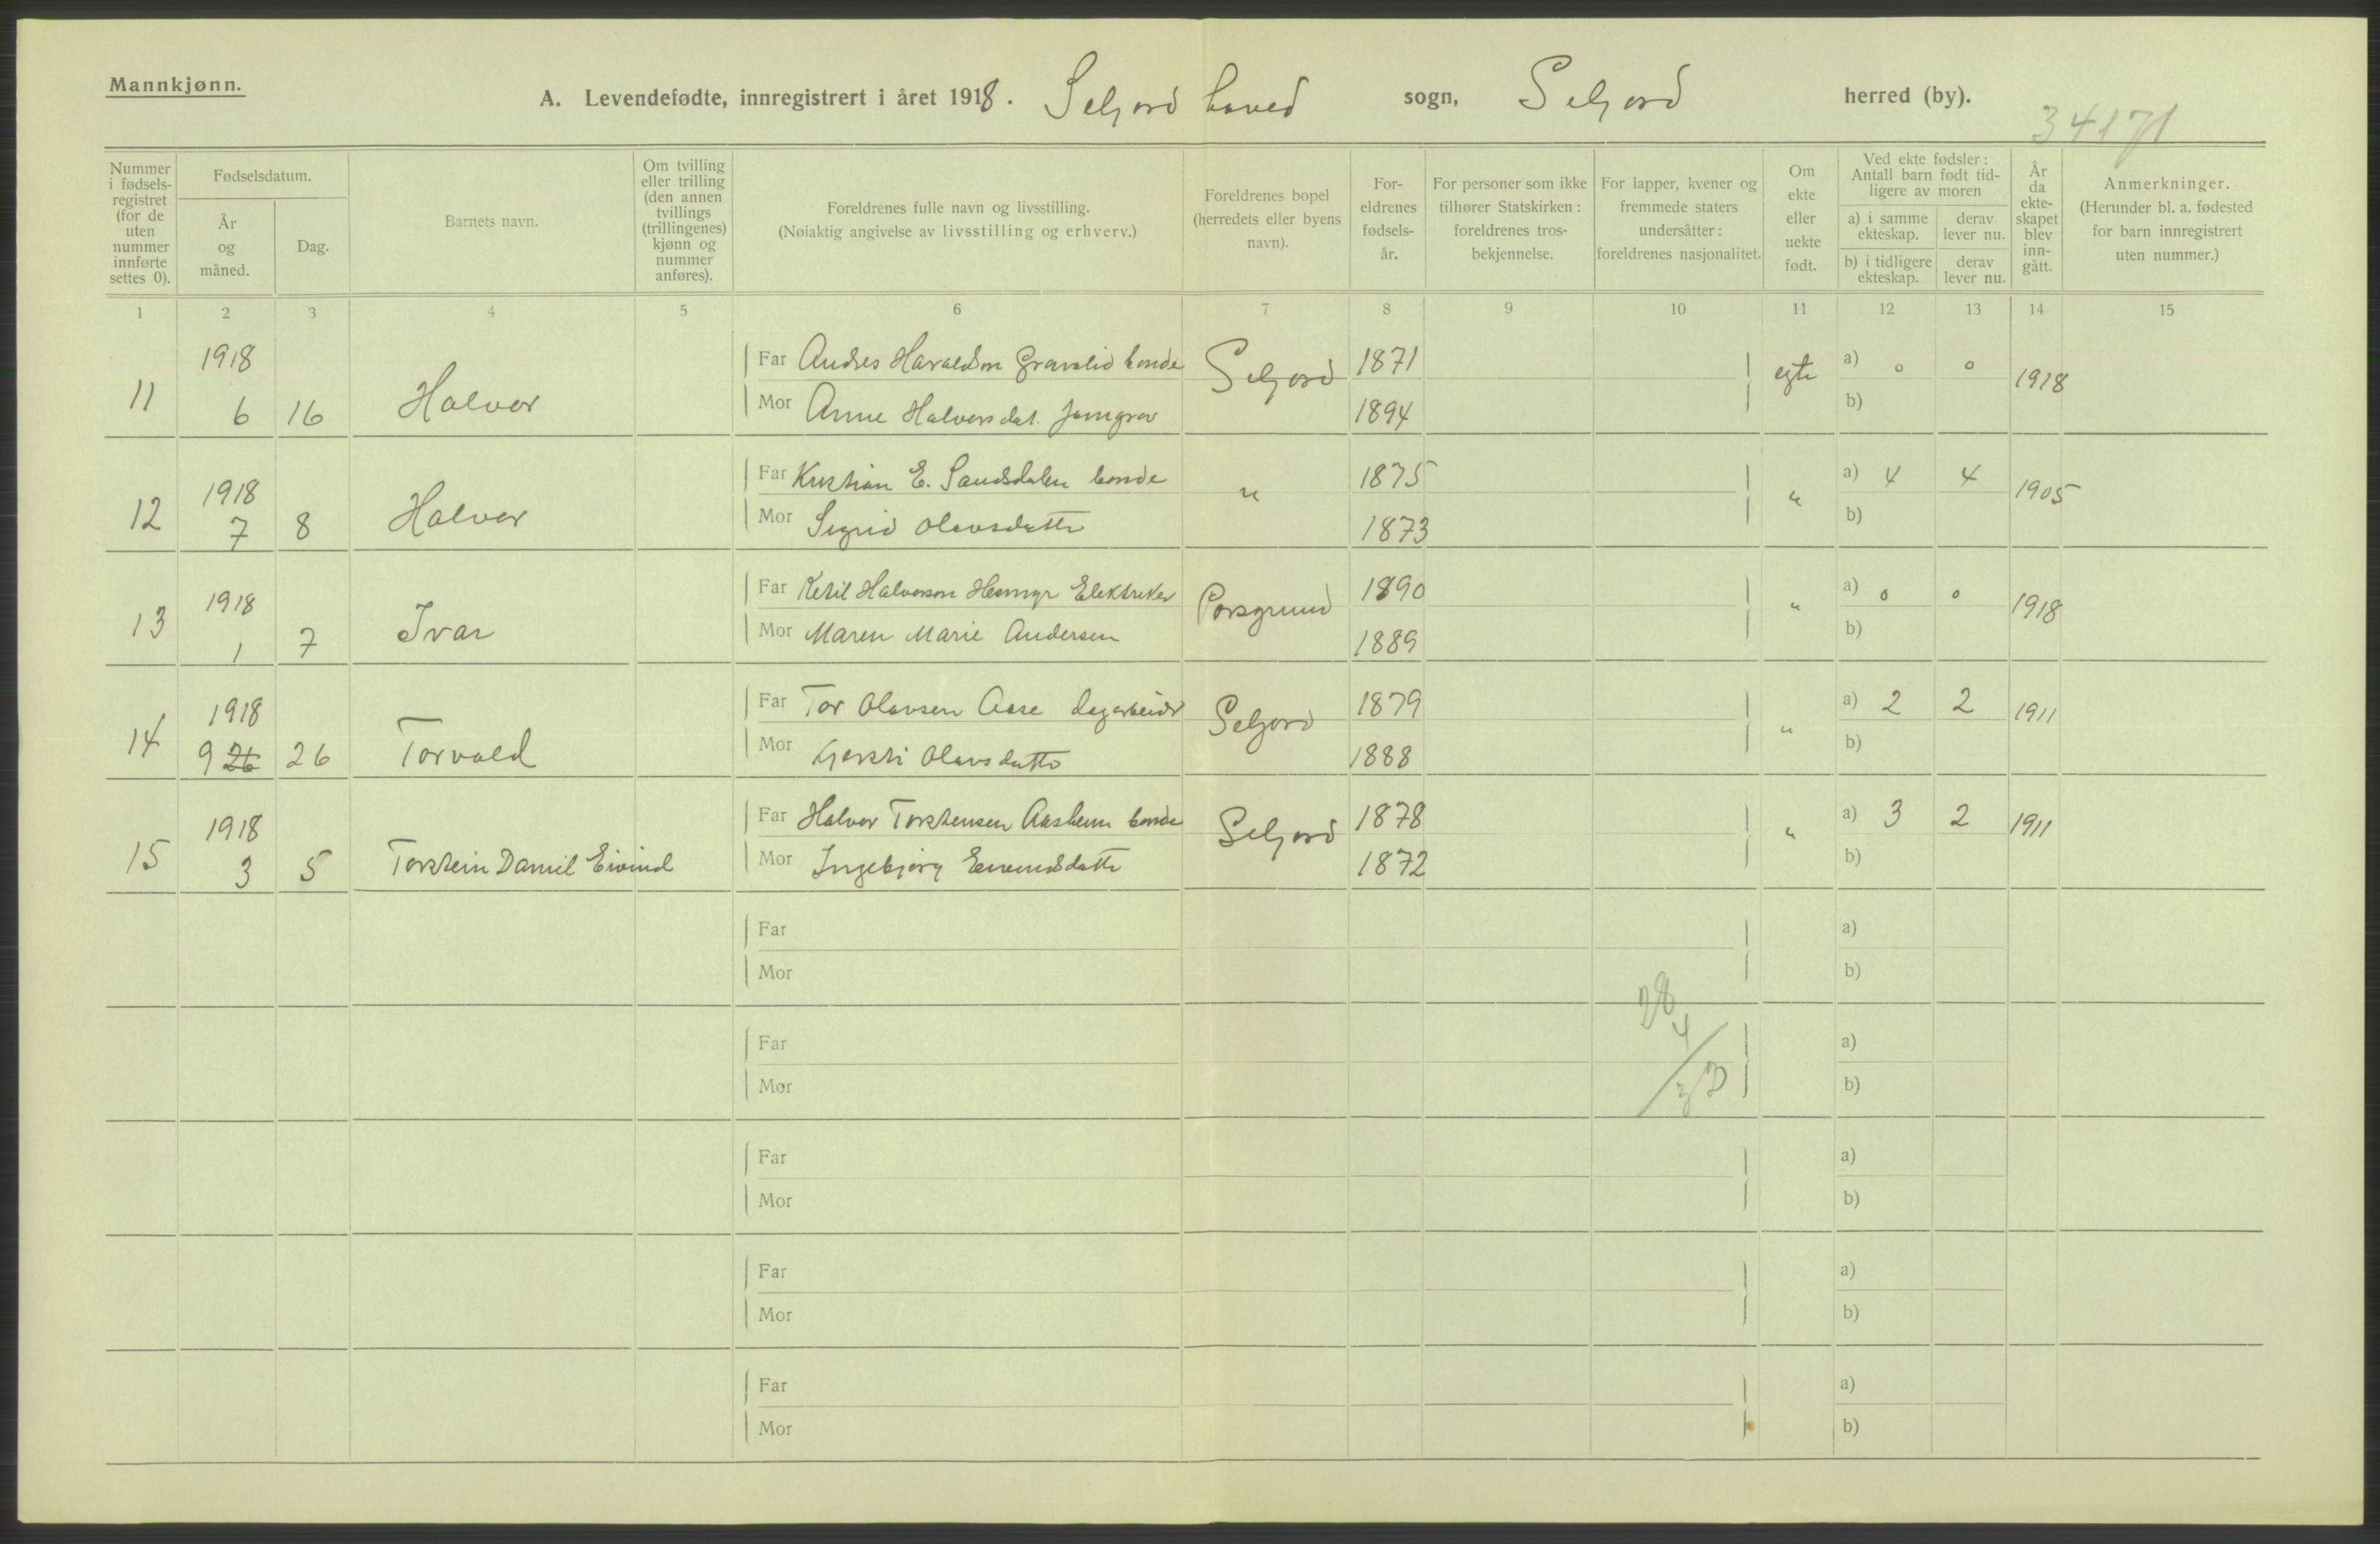 Mannkjønn.
A. Levendefødte, innregistrert i året 1918. Seljord hoved sogn, Seljord herred (by).
34171
Nummer i fødselsregistret (for de uten nummer innførte settes 0).
Fødselsdatum.
År og måned.
Dag.
Barnets navn.
Om tvilling eller trilling (den annen tvillings (trillingenes) kjønn og nummer anføres).
Foreldrenes fulle navn og livsstilling.
(Nøiaktig angivelse av livsstilling og erhverv.)
Foreldrenes bopel (herredets eller byens navn).
Foreldrenes fødselsår.
For personer som ikke tilhører Statskirken: foreldrenes trosbekjennelse.
For lapper, kvener og fremmede staters undersåtter: foreldrenes nasjonalitet.
Om ekte eller uekte født.
Ved ekte fødsler: Antall barn født tidligere av moren
a) i samme ekteskap. derav lever nu.
b) i tidligere ekteskap. derav lever nu.
År da ekteskapet blev inngått.
Anmerkninger.
(Herunder bl. a. fødested for barn innregistrert uten nummer.)
1 2 3 4 5 6 7 8 9 10 11 12 13 14 15
11 1918 6 16 Halvor
Far Andres Haraldsen Gravalid bonde Seljord 1871 egte a) 0 0 1918
Mor Anne Halvorsdat. Jamgrav 1894 b)
12 1918 7 8 Halvor
Far Kristian E. Sandsdalen bonde " 1875 " a) 4 4 1905
Mor Sigrid Olavsdatte 1873 b)
13 1918 1 7 Ivar
Far Ketil Halvorson Elektriker Porsgrund 1890 " a) 0 0 1918
Mor Maren Marie Andersen 1889 b)
14 1918 9 26 26 Torvald
Far Tor Olavsen Aase dagarbeider Seljord 1879 " a) 2 2 1911
Mor Gjersti Olavsdatte 1888 b)
15 1918 3 5 Torstein Daniel Eivind
Far Halvor Torstensen Aasheim bonde Seljord 1878 " a) 3 2 1911
Mor Ingebjørg Eivendsdatte 1872 b)
Far a)
Mor b)
28
4
Far a)
Mor b)
Far a)
Mor b)
Far a)
Mor b)
Far a)
Mor b)